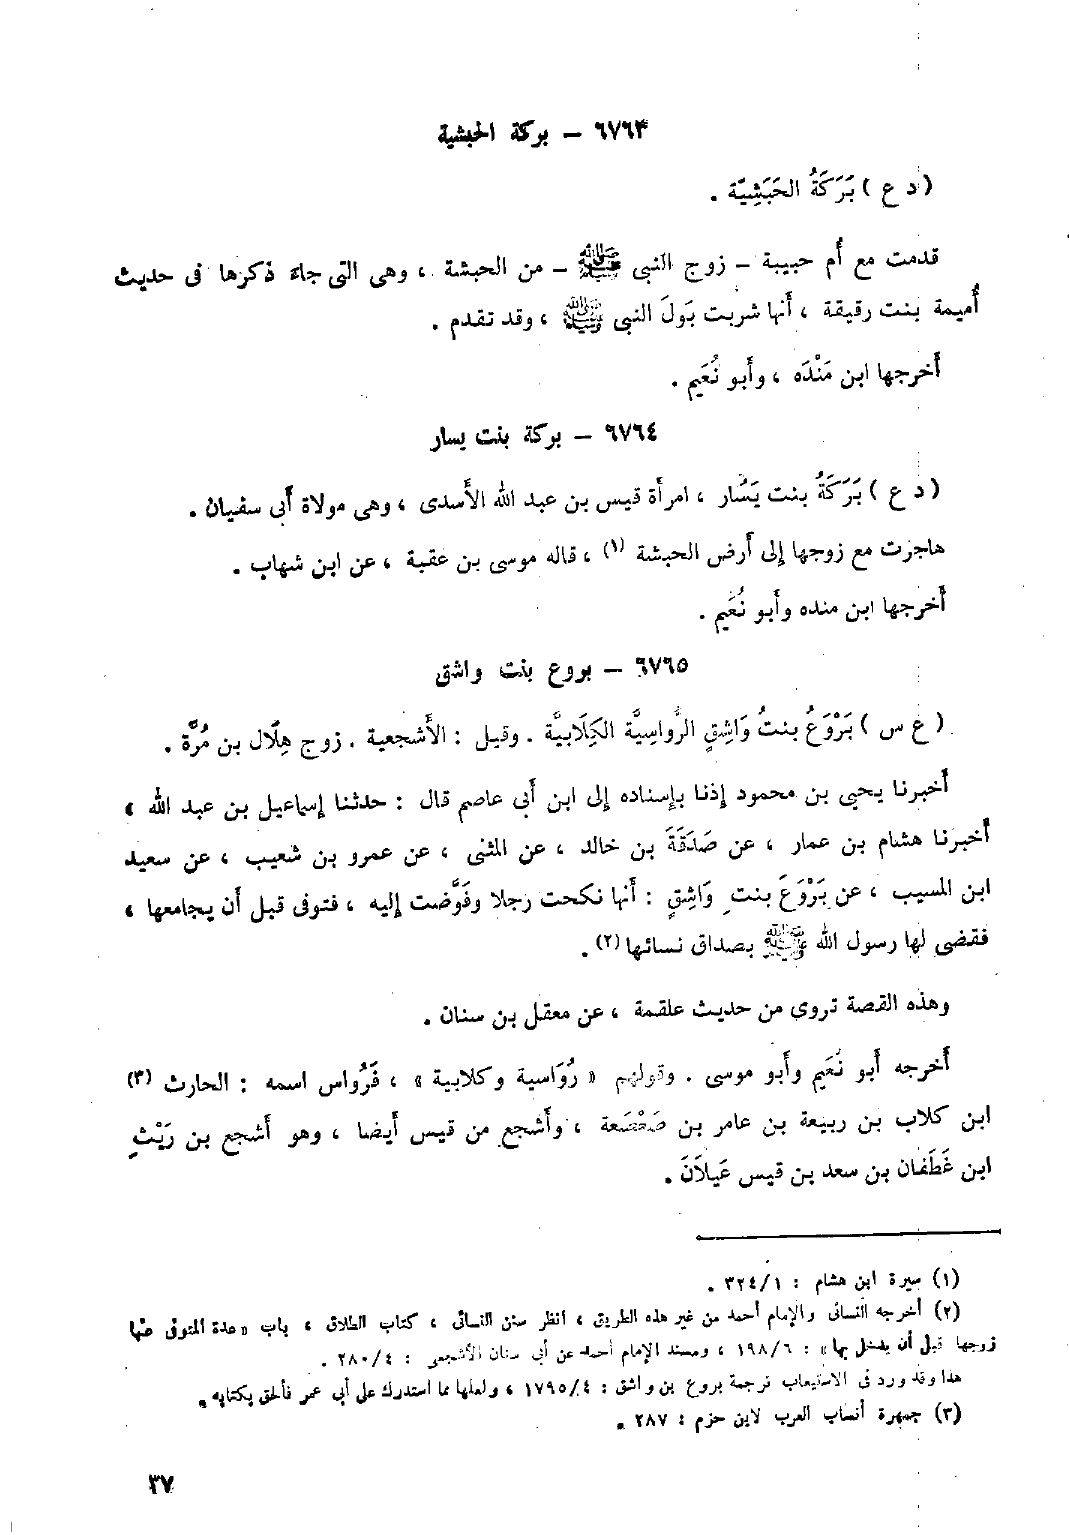 ٦٧٦٣ – بركة الحبشية
( د ع ) بَرَكَةُ الحَبَشِيَّة .
قدمت مع أُم حبيبة – زوج النبى ﷺ – من الحبشة ، وهى التى جاءَ ذكرها فى حديث
أُميمة بنت رقيقة ، أَنها شربت بَولَ النبى ﷺ ، وقد تقدم .
أَخرجها ابن مَنْدَه ، وأَبو نُعَيم .
٦٧٦٤ – بركة بنت يسار
( د ع ) بَرَكَةُ بنت يَسَار ، امرأَة قيس بن عبد الله الأَسدى ، وهى مولاة أَبى سفيان .
هاجرت مع زوجها إلى أَرض الحبشة (١) ، قاله موسى بن عقبة ، عن ابن شهاب .
أَخرجها ابن منده وأَبو نُعَيم .
٦٧٦٥ – بروع بنت واشق
( ع س ) بَرْوَعُ بنتُ وَاشِقٍ الرُّواسِيَّة الكِلَابيَّة . وقيل : الأَشجعية . زوج هِلَال بن مُرَّة .
أَخبرنا يحيى بن محمود إذنا بإسناده إلى ابن أَبى عاصم قال : حدثنا إسماعيل بن عبد الله ،
أَخبرنا هشام بن عمار ، عن صَدَقَةَ بن خالد ، عن المثنى ، عن عمرو بن شعيب ، عن سعيد
ابن المسيب ، عن بَرْوَعَ بنتِ وَاشِقٍ : أَنها نكحت رجلا وفَوَّضت إليه ، فتوفى قبل أَن يجامعها ،
فقضى لها رسول الله ﷺ بصداق نسائها (٢) .
وهذه القصة تروى من حديث علقمة ، عن معقل بن سنان .
أَخرجه أَبو نُعَيم وأَبو موسى . وقولهم « رُوَاسية وكلابية » ، فَرُواس اسمه : الحارث (٣)
ابن كلاب بن ربيعة بن عامر بن صَعْصَعة ، وأَشجع من قيس أَيضا ، وهو أَشجع بن رَيْثِ
ابن غَطَفان بن سعد بن قيس عَيلَانَ .
(١) سيرة ابن هشام : ٣٢٤/١ .
(٢) أخرجه النسائى والإمام أحمد من غير هذه الطريق ، انظر سنن النسائى ، كتاب الطلاق ، باب « عدة المتوفى عنها
زوجها قبل أن يدخل بها » : ١٩٨/٦ ، ومسند الإمام أحمد عن أبى سنان الأشجعى : ٢٨٠/٤ .
هذا وقد ورد فى الاستيعاب ترجمة بروع بن واشق : ١٧٩٥/٤ ، ولعلها مما استدرك على أبى عمر فألحق بكتابه .
(٣) جمهرة أنساب العرب لابن حزم : ٢٨٧ .
٣٧